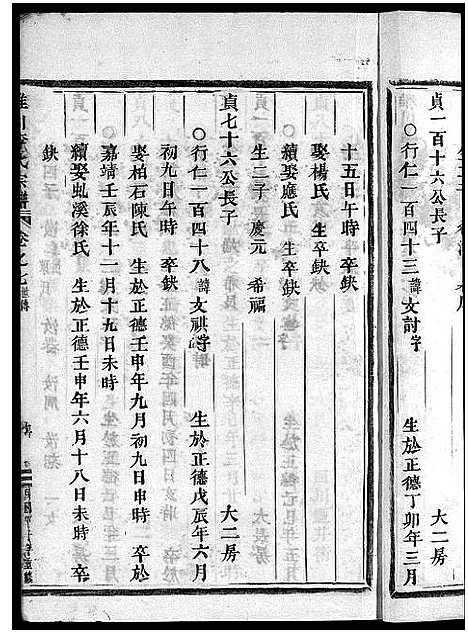 貞一百十六公長子
大二房
○行仁一百四十三諱文討字
生於正德丁卯年三月
十五日午時卒缺
娶楊氏 生卒缺
續娶應氏 生卒缺
生二子 慶元 希福
貞七十六公長子
大二房
○行仁一百四十八諱文祺字
生於正德戊辰年六月
初九日午時 卒缺
娶柏石陳氏 生於正德壬申年九月初九日申時 卒於
嘉靖壬辰年十一月十九日未時
續娶虬溪徐氏 生於正德壬申年六月十八日未時 卒
缺
氏宗譜
卷之七